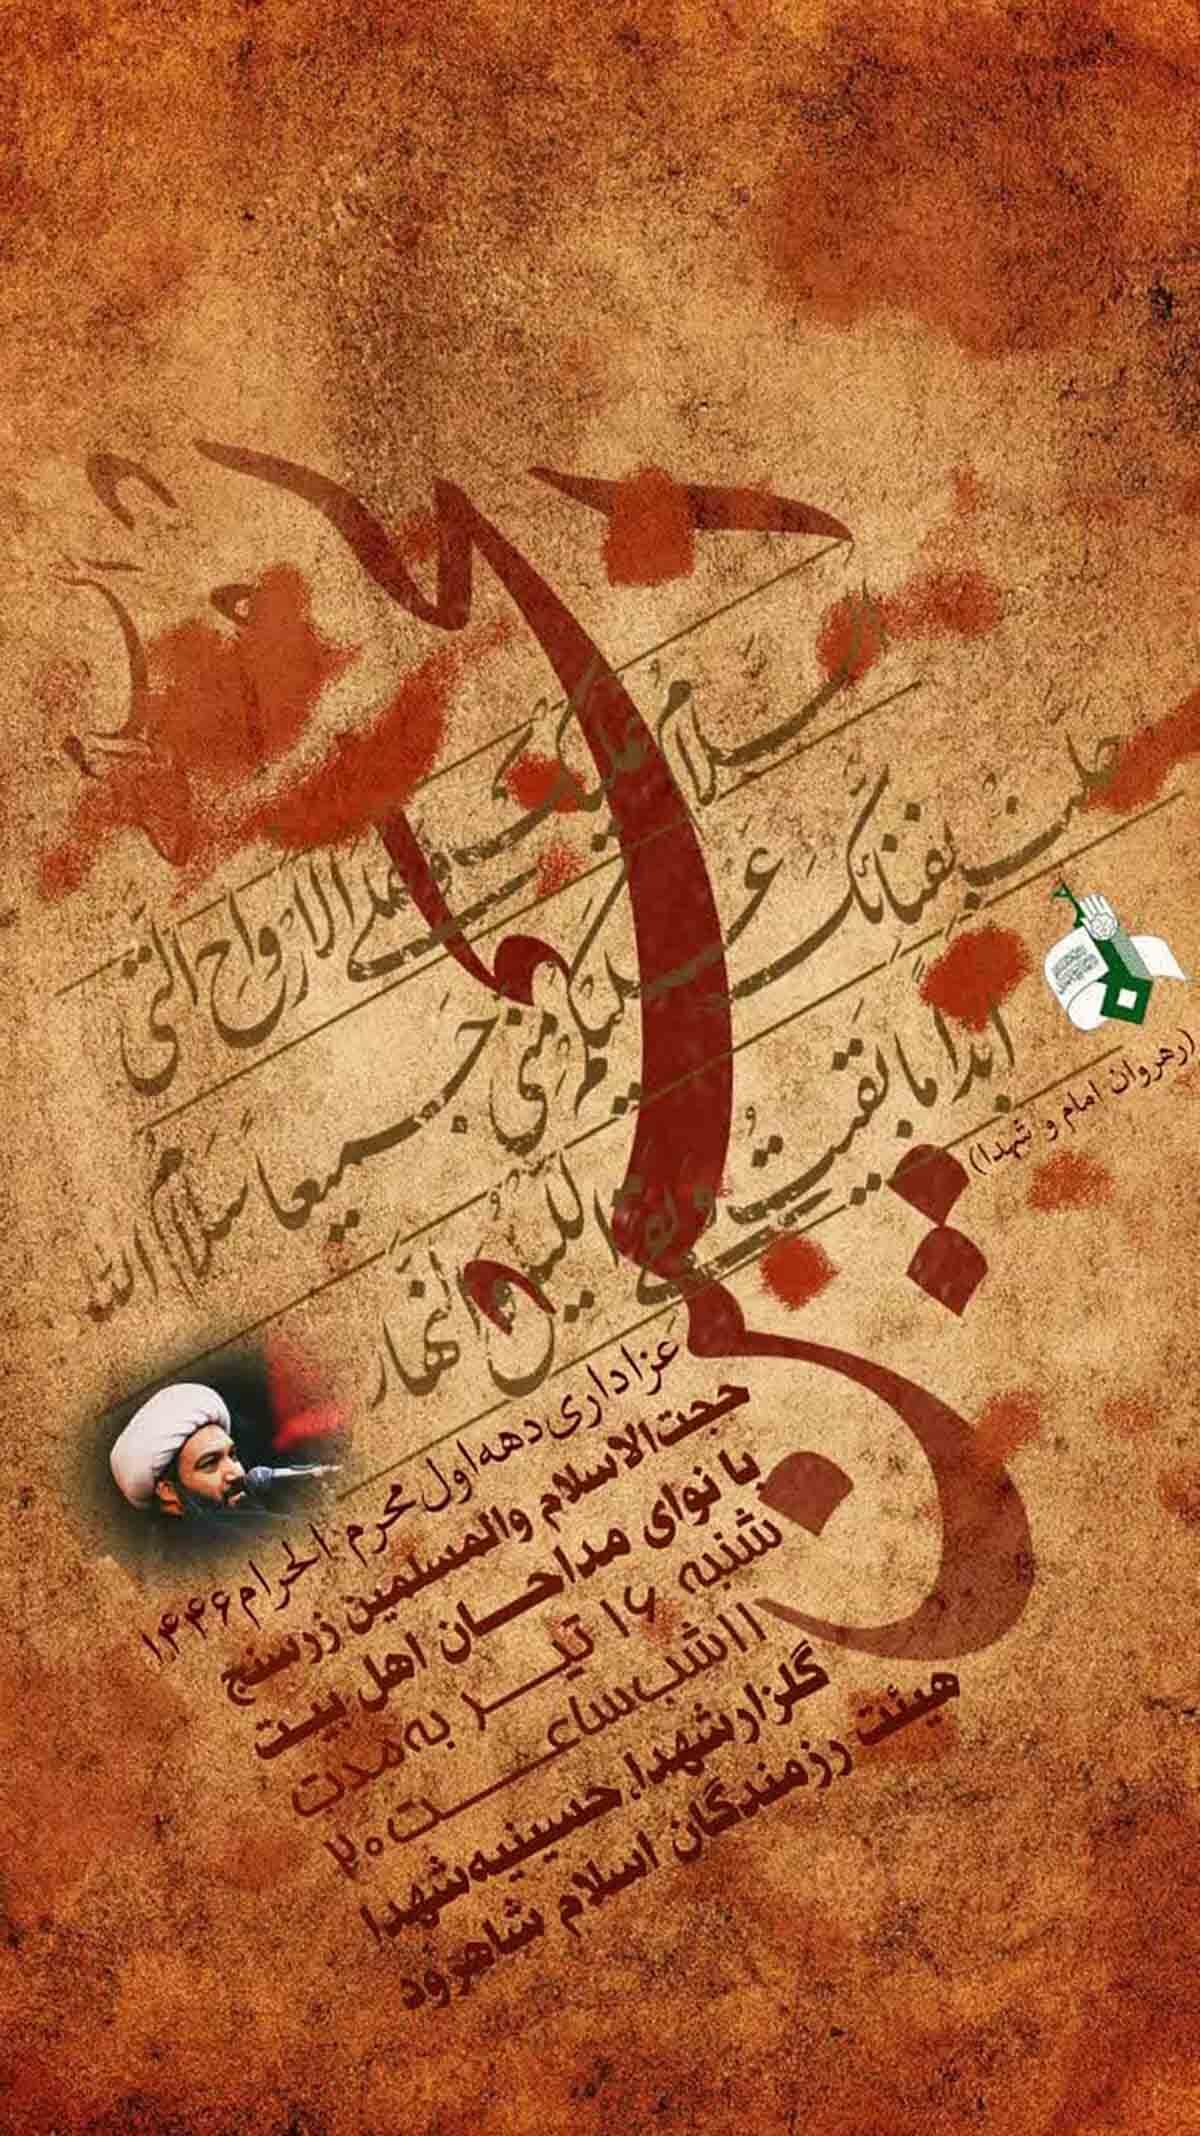 حسین
السلام علیک و علی الارواح التی
حلت بفنائک علیکم منی جمیعا سلام الله
ابدا ما بقیت و بقی اللیل و النهار
(رهروان امام و شهدا)
عزاداری دهه اول محرم الحرام ۱۴۴۶
حجت‌الاسلام والمسلمین زرسنج
با نوای مداحان اهل بیت
شنبه ۱۶ تیر به مدت
۱۱ شب ساعت ۲۰
گلزار شهدا، حسینیه شهدا
هیئت رزمندگان اسلام شاهرود